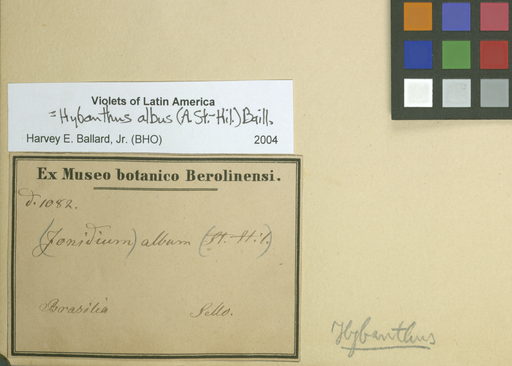 Violets of Latin America
= Hybanthus albus (A. St.-Hil.) Baill.
Harvey E. Ballard, Jr. (BHO) 2004
Ex Museo botanico Berolinensi.
d. 1082.
(Jonidium) album (St. Hil.)
Brasilia Sello.
Hybanthus